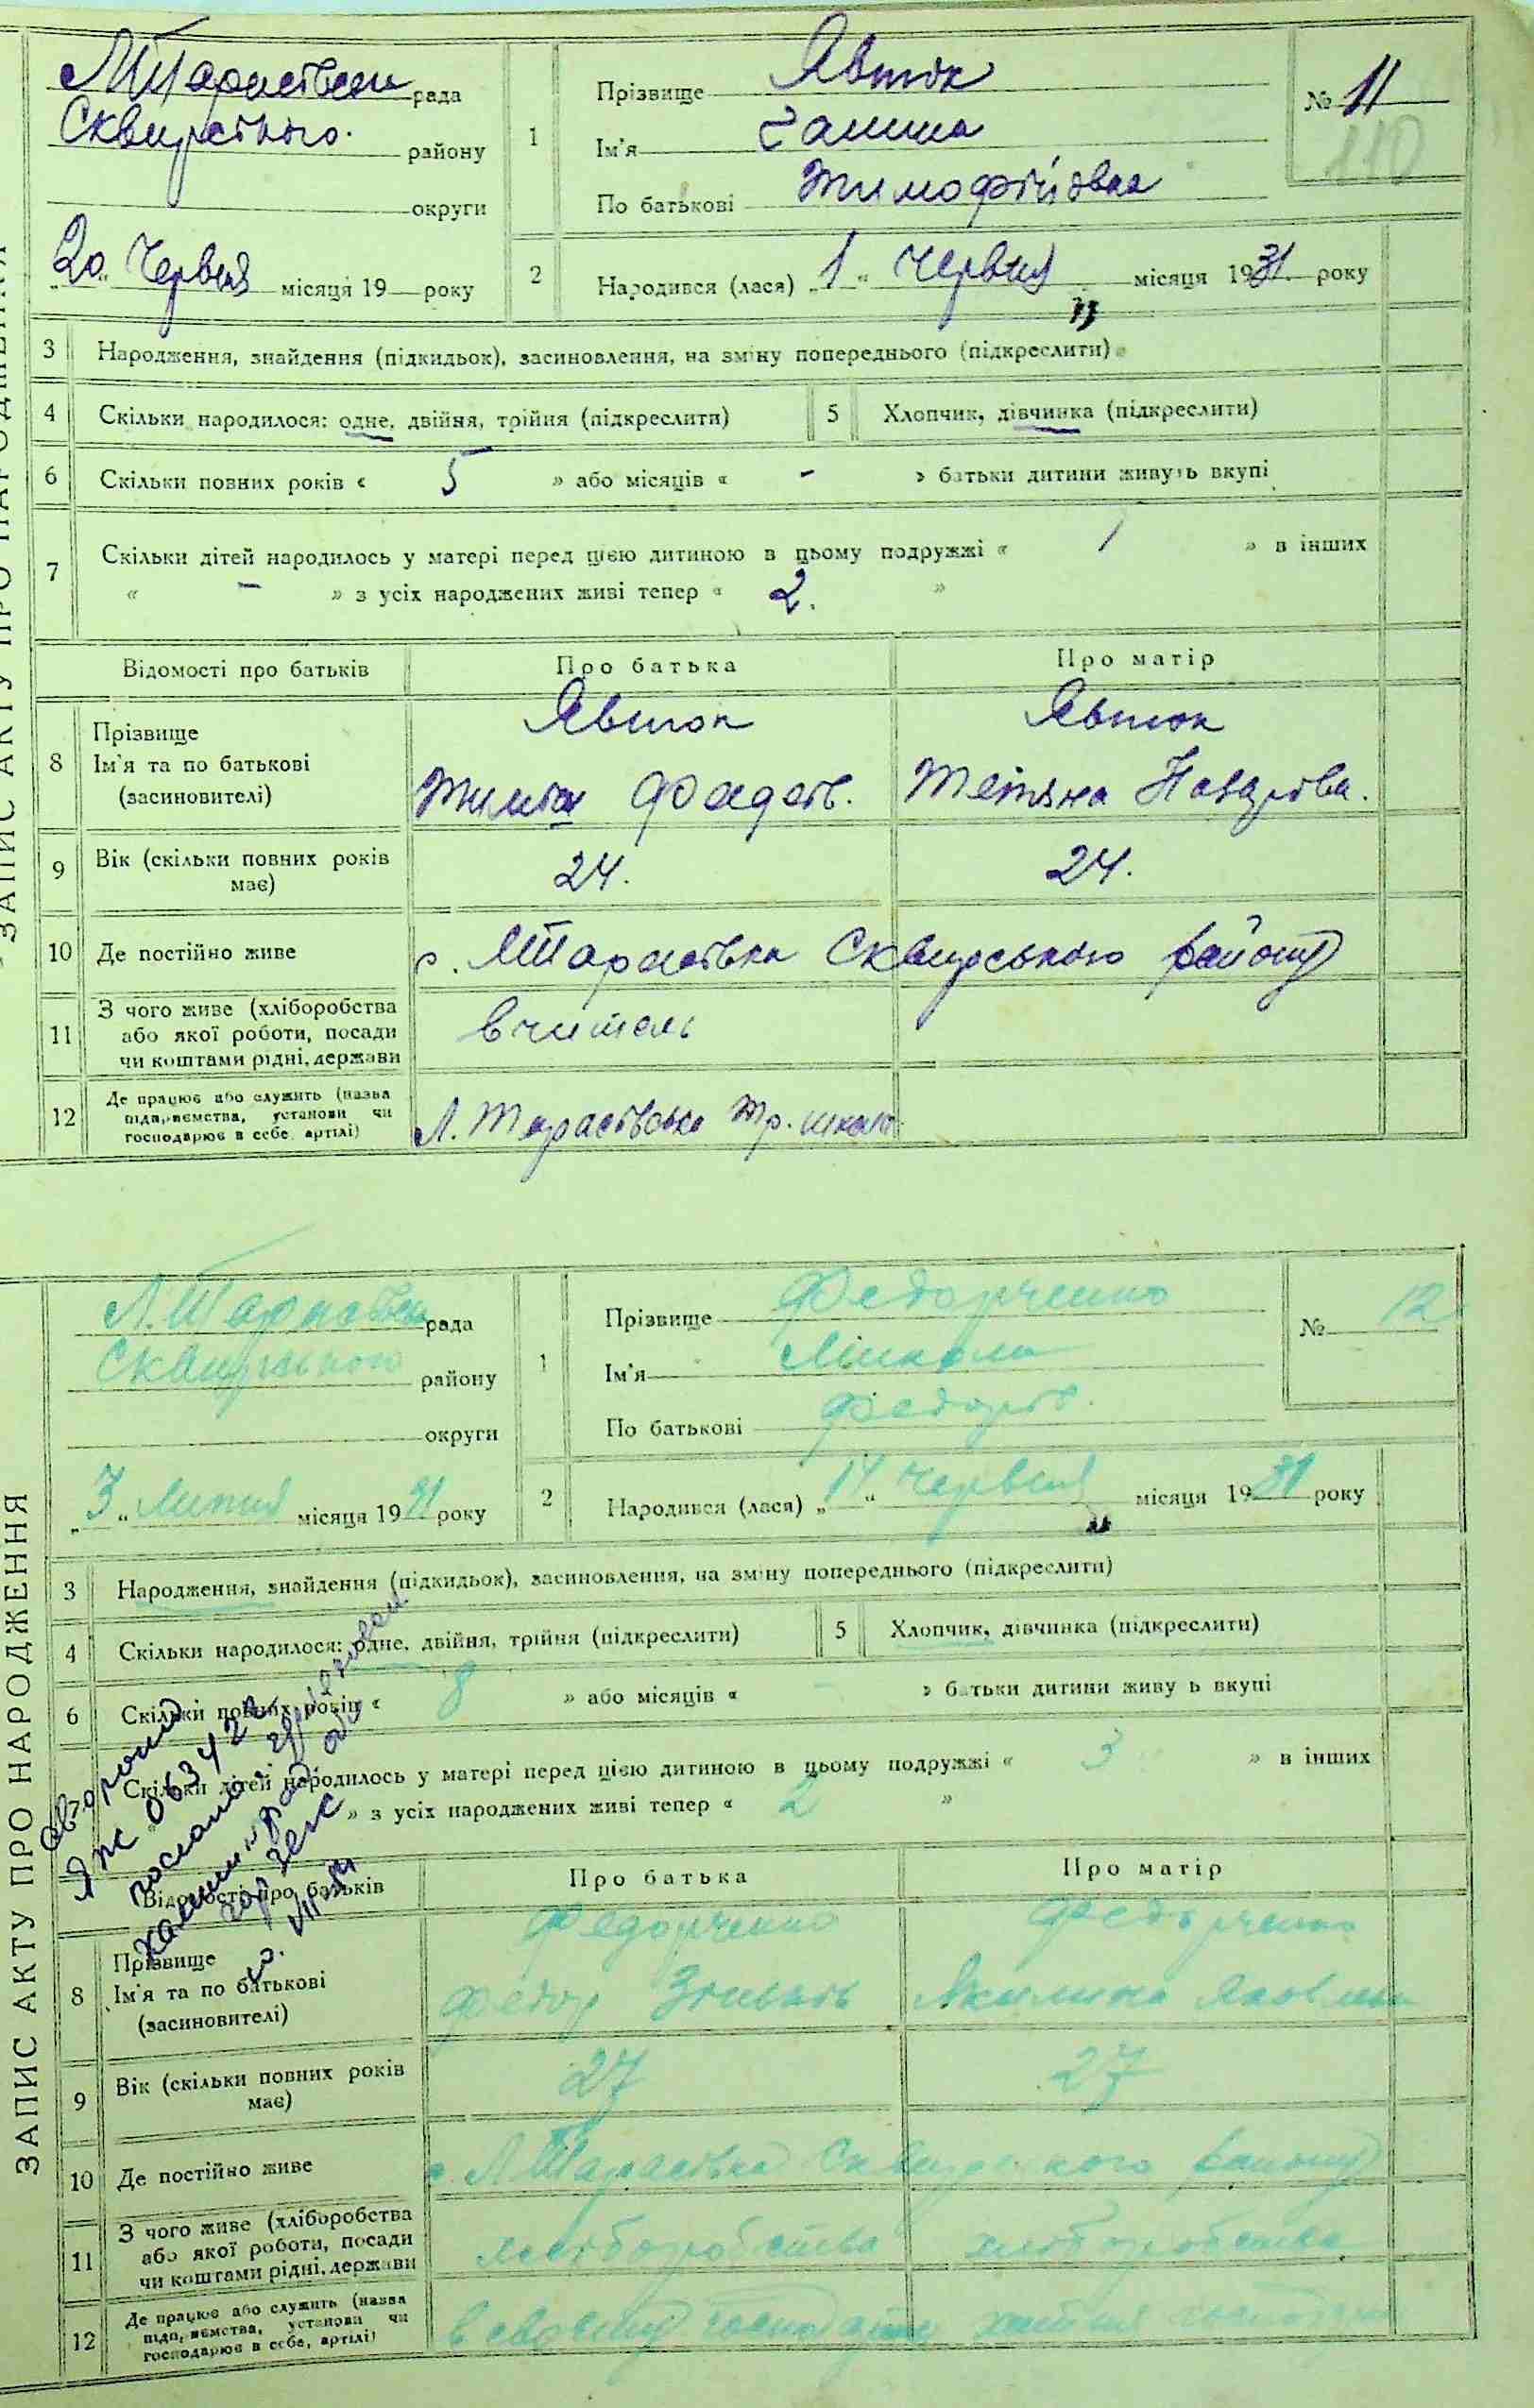 ЗАПИС АКТУ ПРО НАРОДЖЕННЯ
рада
Сквирського району
округи
„20“ Червня місяця 19 року
1
Прізвище Явток
Ім'я Галина
По батькові Тимофіївна
№ 11
110
2 Народився (лася) „1“ Червня місяця 1931 року
3 Народження, знайдення (підкидьок), засиновлення, на зміну попереднього (підкреслити)
4 Скільки народилося: одне, двійня, трійня (підкреслити)
5 Хлопчик, дівчинка (підкреслити)
6 Скільки повних років « 5 » або місяців « - » батьки дитини живуть вкупі
7 Скільки дітей народилось у матері перед цією дитиною в цьому подружжі « 1 » в інших
« - » з усіх народжених живі тепер « 2. »
Відомості про батьків Про батька Про матір
8 Прізвище
Ім'я та по батькові
(засиновителі)
Явток Явток
Тетяна
9 Вік (скільки повних років
має)
24. 24.
10 Де постійно живе с. Тарасівка Сквирського району
11 З чого живе (хліборобства
або якої роботи, посади
чи коштами рідні, держави
вчитель
12 Де працює або служить (назва
підприємства, установи чи
господарює в себе, артілі)
Л. Тарасівська Тр. школа
ЗАПИС АКТУ ПРО НАРОДЖЕННЯ
рада
Сквирського району
округи
„3“ Липня місяця 1931 року
1
Прізвище Федорченко
Ім'я Микола
По батькові Федорів.
№ 12
2 Народився (лася) „14“ Червня місяця 1931 року
3 Народження, знайдення (підкидьок), засиновлення, на зміну попереднього (підкреслити)
4 Скільки народилося: одне, двійня, трійня (підкреслити)
5 Хлопчик, дівчинка (підкреслити)
6 Скільки повних років « 8 » або місяців « - » батьки дитини живу ь вкупі
Скільки дітей народилось у матері перед цією дитиною в цьому подружжі « 3 » в інших
» з усіх народжених живі тепер « 2 »
Відомості про батьків Про батька Про матір
8 Прізвище
Ім'я та по батькові
(засиновителі)
Федорченко Федорченко
Федор Яковлівна
9 Вік (скільки повних років
має)
27 27
10 Де постійно живе с. Л Тарасівка Сквирського району
11 З чого живе (хліборобства
або якої роботи, посади
чи коштами рідні, держави
хліборобства хліборобства
12 Де працює або служить (назва
підприємства, установи чи
господарює в себе, артілі)
в своєму